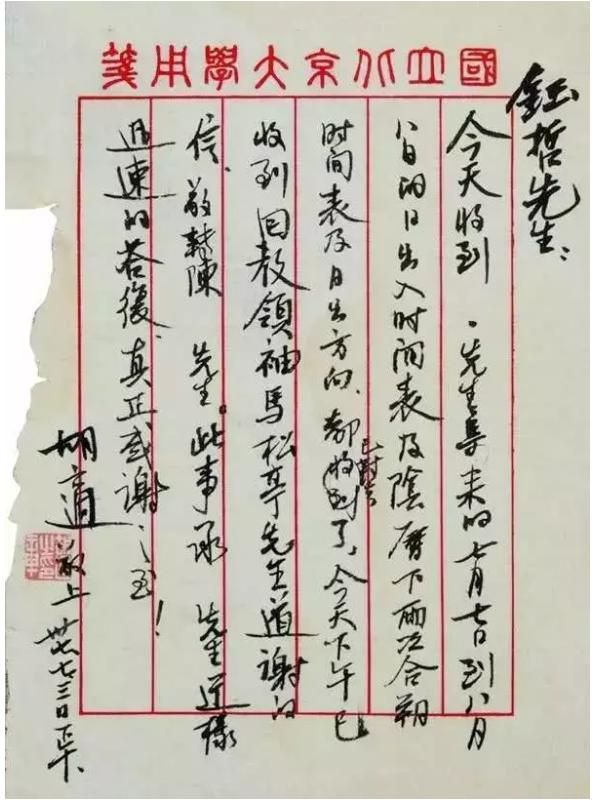 國立北京大學用箋
鈺哲先生：
今天收到 先生寄来的七月七日到八月
八日的日出入时间表及陰曆下兩次合朔
时间表及日出方向、都收到了，今天下午已
收到回教領袖馬松亭先生道謝的
信、敬轉陳 先生。此事承 先生這樣
迅速的答復，真正感謝之至！
胡適敬上 卅七七三日